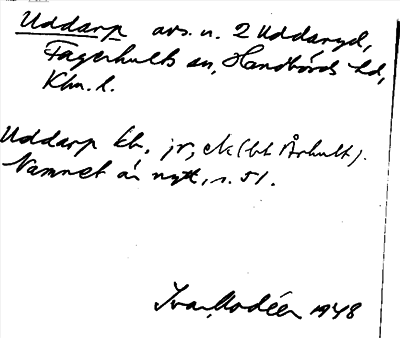 Uddarp avs. u. 2 Uddaryd,
Fagerhults sn, Handbörds hd,
Klm. l.
Uddarp kh. jr, ek (bl Århult).
Namnet är nytt, s. 51.
Ivar Modéer 1948